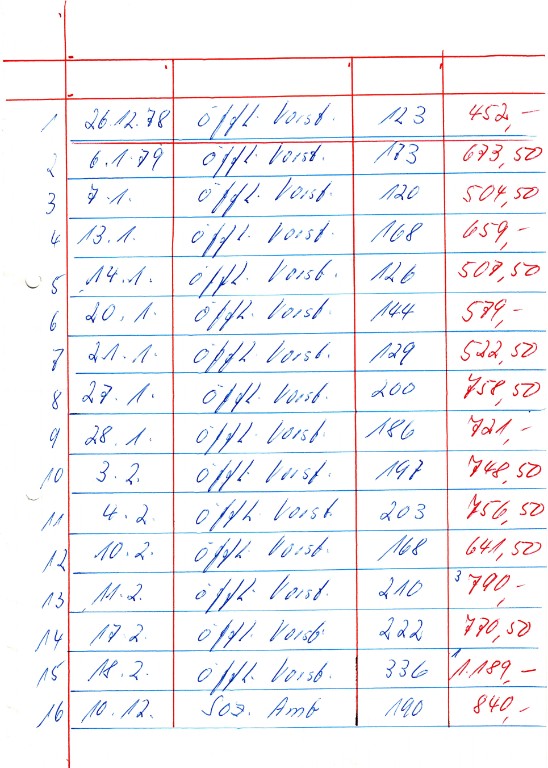 1 26.12.78 öffl. Vorst. 123 452,-
2 6.1.79 öffl. Vorst. 173 673,50
3 7.1. öffl. Vorst. 120 504,50
4 13.1. öffl. Vorst. 168 659,-
5 14.1. öffl. Vorst. 126 507,50
6 20.1. öffl. Vorst. 144 579,-
7 21.1. öffl. Vorst. 129 522,50
8 27.1. öffl. Vorst. 200 758,50
9 28.1. öffl. Vorst. 186 721,-
10 3.2. öffl. Vorst. 197 748,50
11 4.2. öffl. Vorst 203 756,50
12 10.2. öffl. Vorst. 168 641,50
13 11.2. öffl. Vorst. 210 3 790,-
14 17.2. öffl. Vorst 222 770,50
15 18.2. öffl. Vorst. 336 1 1.189,-
16 10.12. Soz. Amt 190 840,-